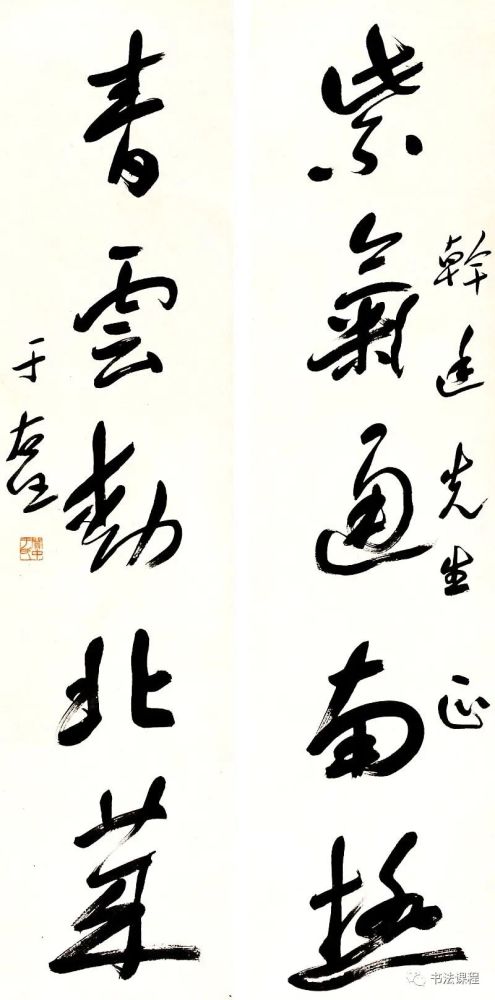 幹廷先生正
紫氣通南極
青雲動北萊
于右任
關中于氏
书法课程